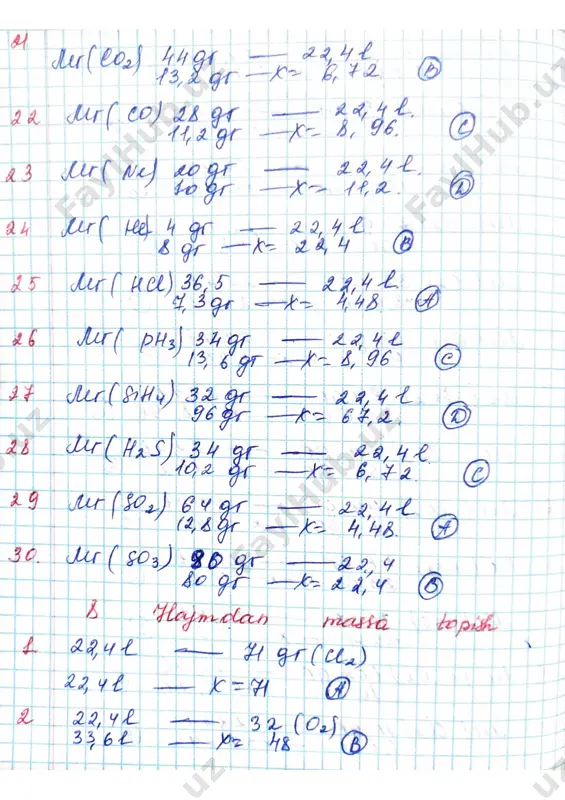 21 Mr(CO2) 44gr — 22,4l
13,2gr — x = 6,72 B
22 Mr(CO) 28 gr — 22,4l.
11,2gr — x = 8,96. C
23 Mr(Ne) 20gr — 22,4l.
10gr — x = 11,2. D
24 Mr(He) 4 gr — 22,4l
8 gr — x = 22,4 B
25 Mr(HCl) 36,5 — 22,4l
7,3gr — x = 4,48 A
26 Mr(PH3) 34gr — 22,4l
13,6gr — x = 8,96 C
27 Mr(SiH4) 32 gr — 22,4l
96gr — x = 67,2. D
28 Mr(H2S) 34 gr — 22,4l
10,2 gr — x = 6,72. C
29 Mr(SO2) 64gr — 22,4l
12,8gr — x = 4,48. A
30. Mr(SO3) 80 gr — 22,4
80 gr — x = 22,4 B
8 Hajmdan massa topish
1 22,4l — 71 gr(Cl2)
22,4l — x = 71 A
2 22,4l — 32 (O2)
33,6l — x = 48 B
FaylHub.uz
FaylHub.uz
FaylHub.uz
FaylHub.uz